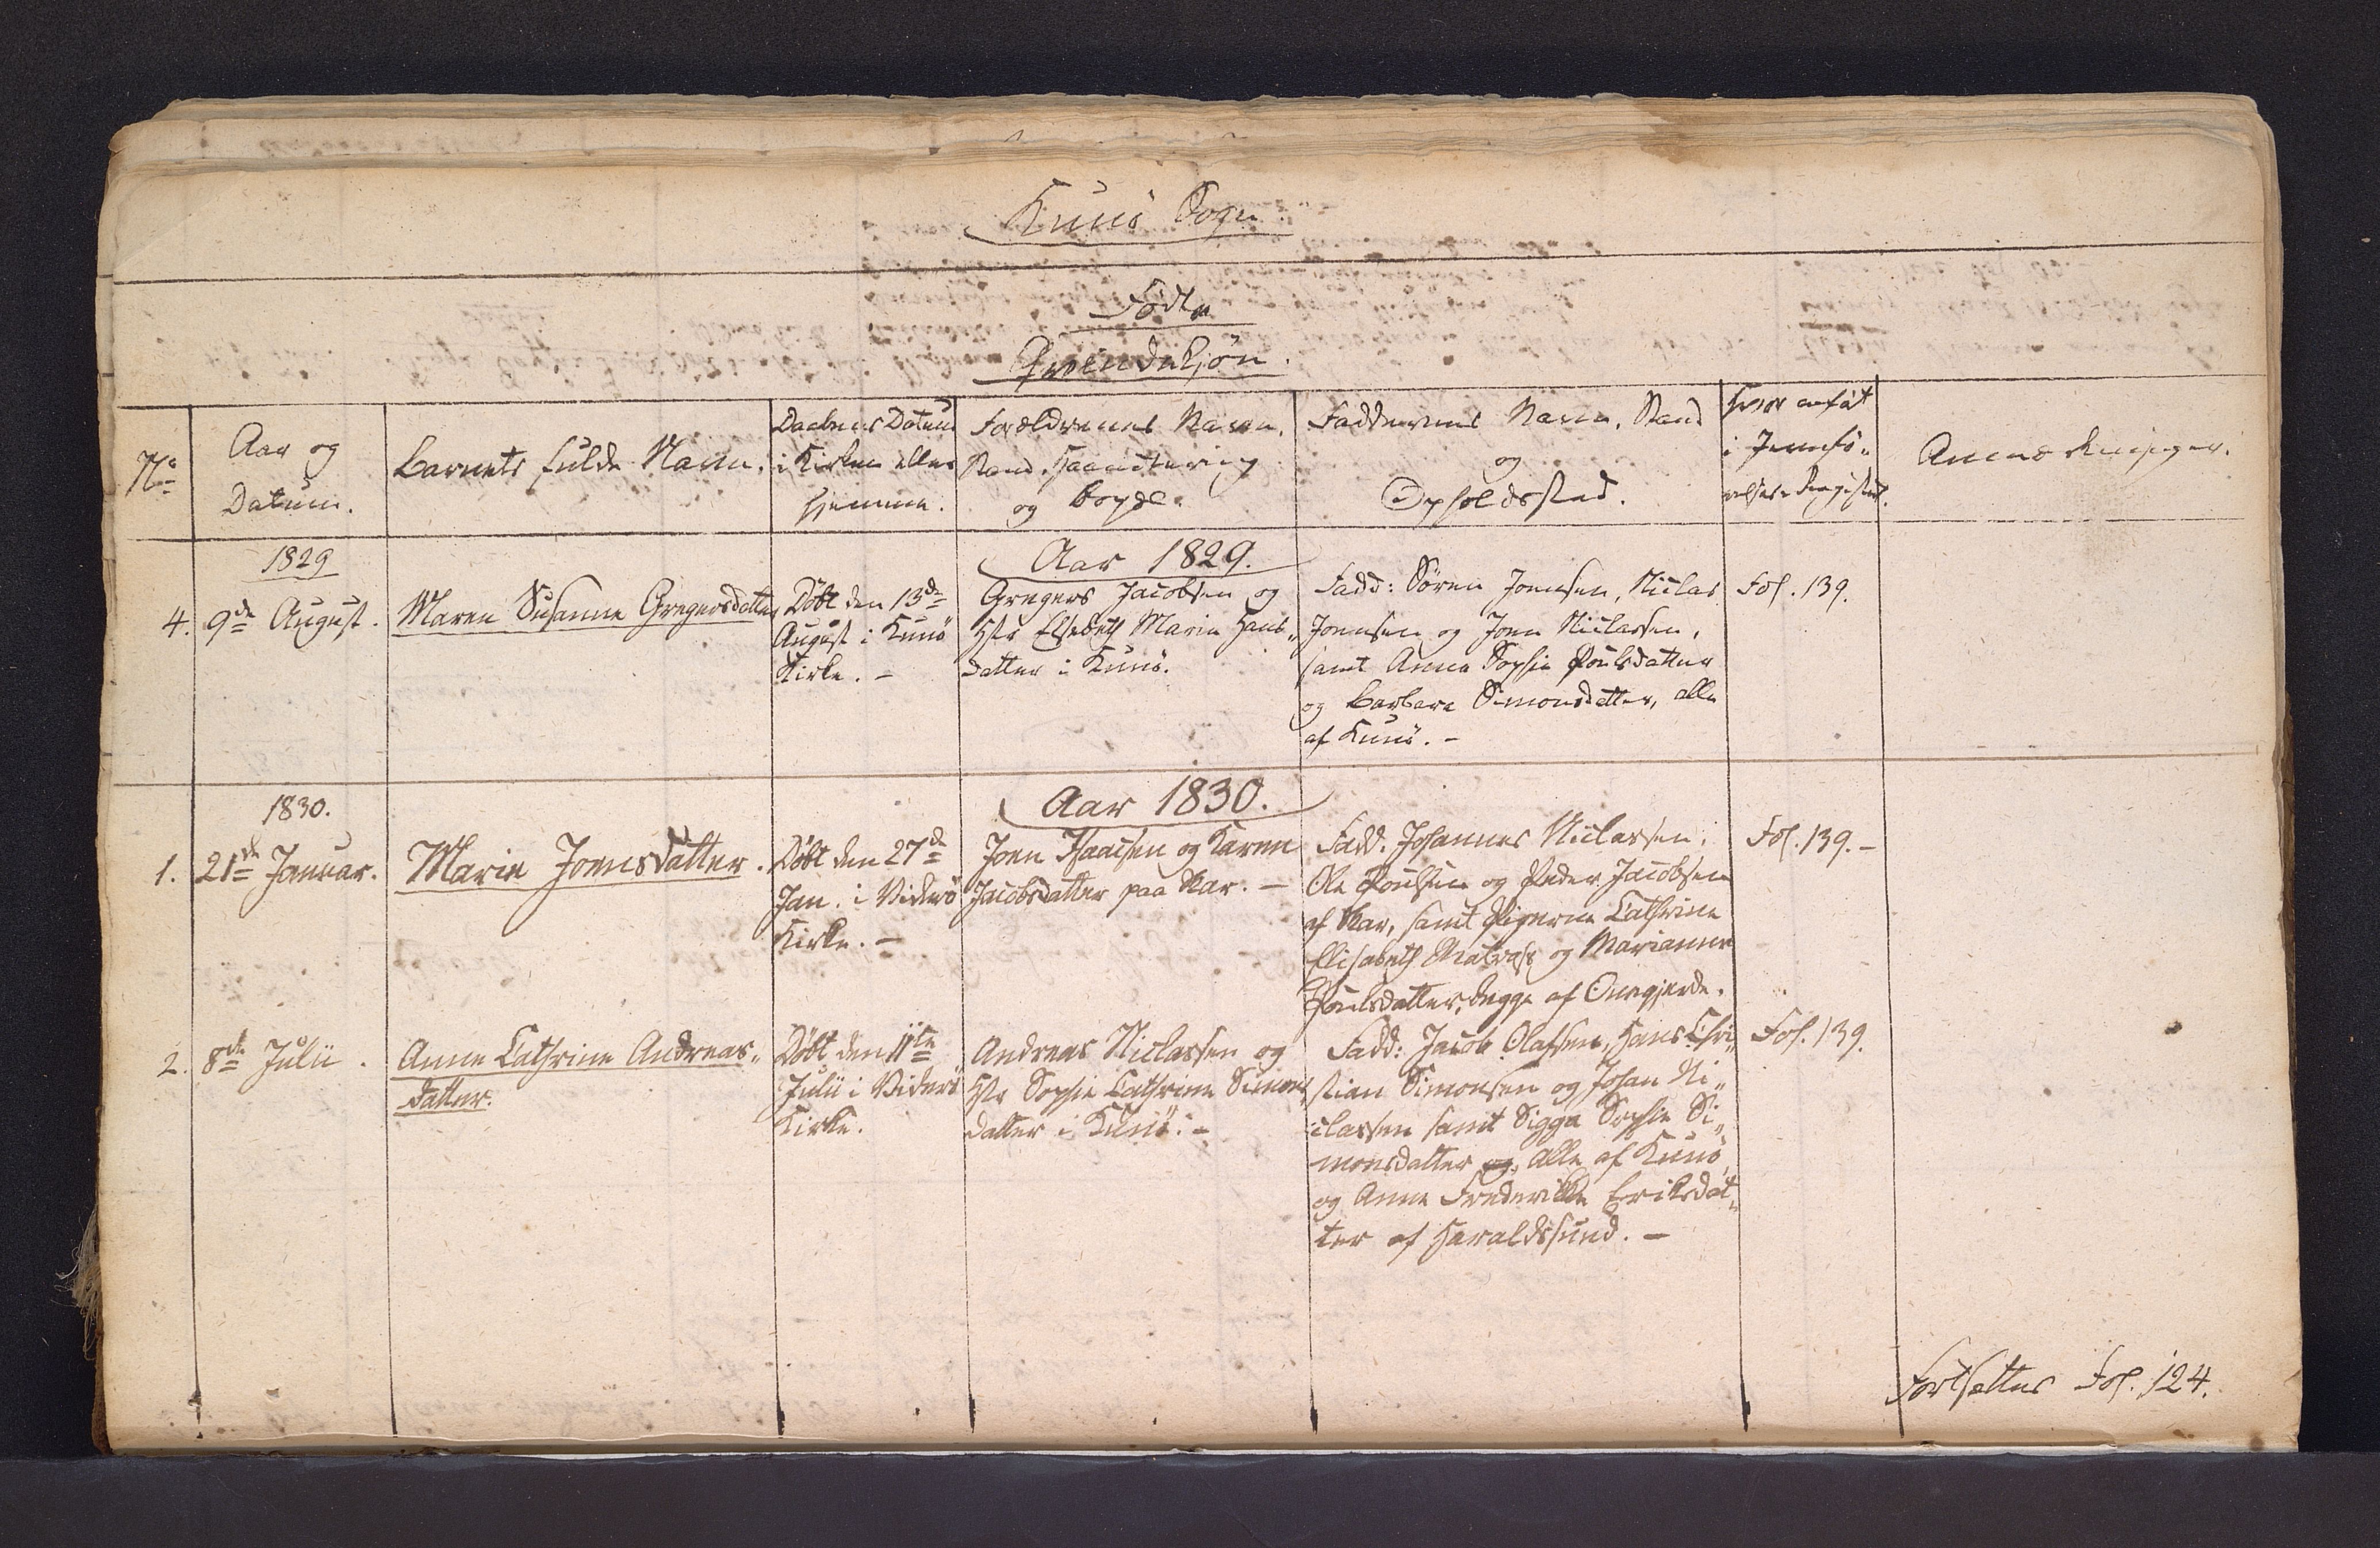 Kunø Sogn.
Fødte
Qvindekjøn.
No
Aar og
Datum.
Barnets fulde Navn.
Daabens Datum
i Kirken eller
hjemme.
Forældrenes Navn,
Stand, Haandtering
og Bopæl.
Faddernes Navn, Stand
og
Opholdsstad.
Hvor anført
i Jevnfø-
relses-Registret.
Anmærkninger.
1829
Aar 1829.
4.
9de August.
Maren Susanne Gregersdatter
Døbt den 13de
August i Kunø
Kirke. -
Gregers Jacobsen og
Hstr Elsebeth Marie Hans-
datter i Kunø.
Fadd: Sören Joensen, Niclas
Joensen og Joen Niclassen,
samt Anna Sophie Poulsdatter
og Barbara Simonsdatter, alle
af Kunø. -
Fol. 139.
1830.
Aar 1830.
1.
21de Januar.
Marie Joensdatter.
Døbt den 27de
Jan. i Viderø
Kirke. -
Joen Isaacsen og Karen
Jacobsdatter paa Skar. -
Fadd. Johannes Niclassen,
Ole Poulsen og Peder Jacobsen
af Skar, samt Pigerne Cathrine
Elisabeth Matras og Marianne
Poulsdatter, begge af Onagjerde.
Fol. 139. -
2.
8de Julii.
Anne Cathrine Andreas-
datter.
Døbt den 11te
Julii i Viderø
Kirke.
Andreas Niclassen og
Hstr Sophie Cathrine Simons
datter i Kunø. -
Fadd: Jacob Olafsen, Hans Chri-
stian Simonsen og Johan Ni-
classen samt Sigga Sophie Si-
monsdatter og, alle af Kunø,
og Anne Frederikke Eriksdat-
ter af Haraldssund. -
Fol. 139.
Fortsættes Fol. 124.